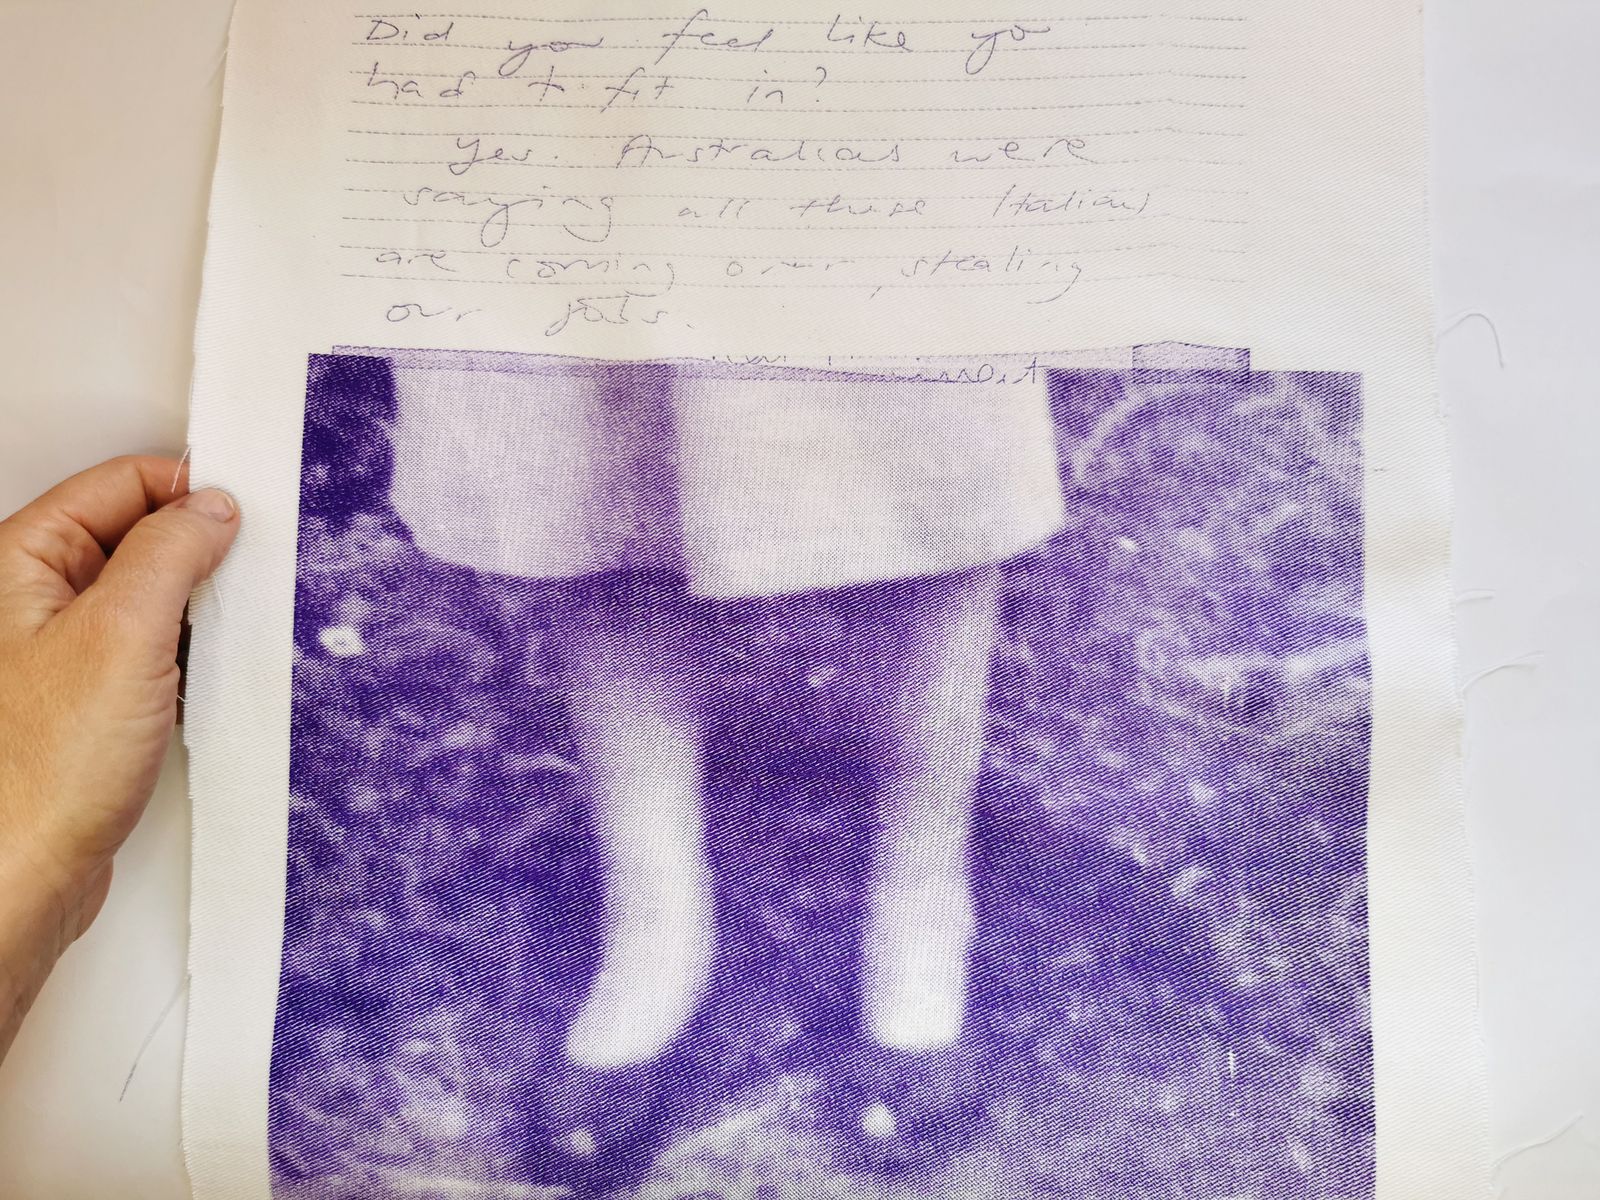 Did you feel like yo
had to fit in?
Yes. Australias were
saying all these Italians
are coming over, stealing
our jobs.